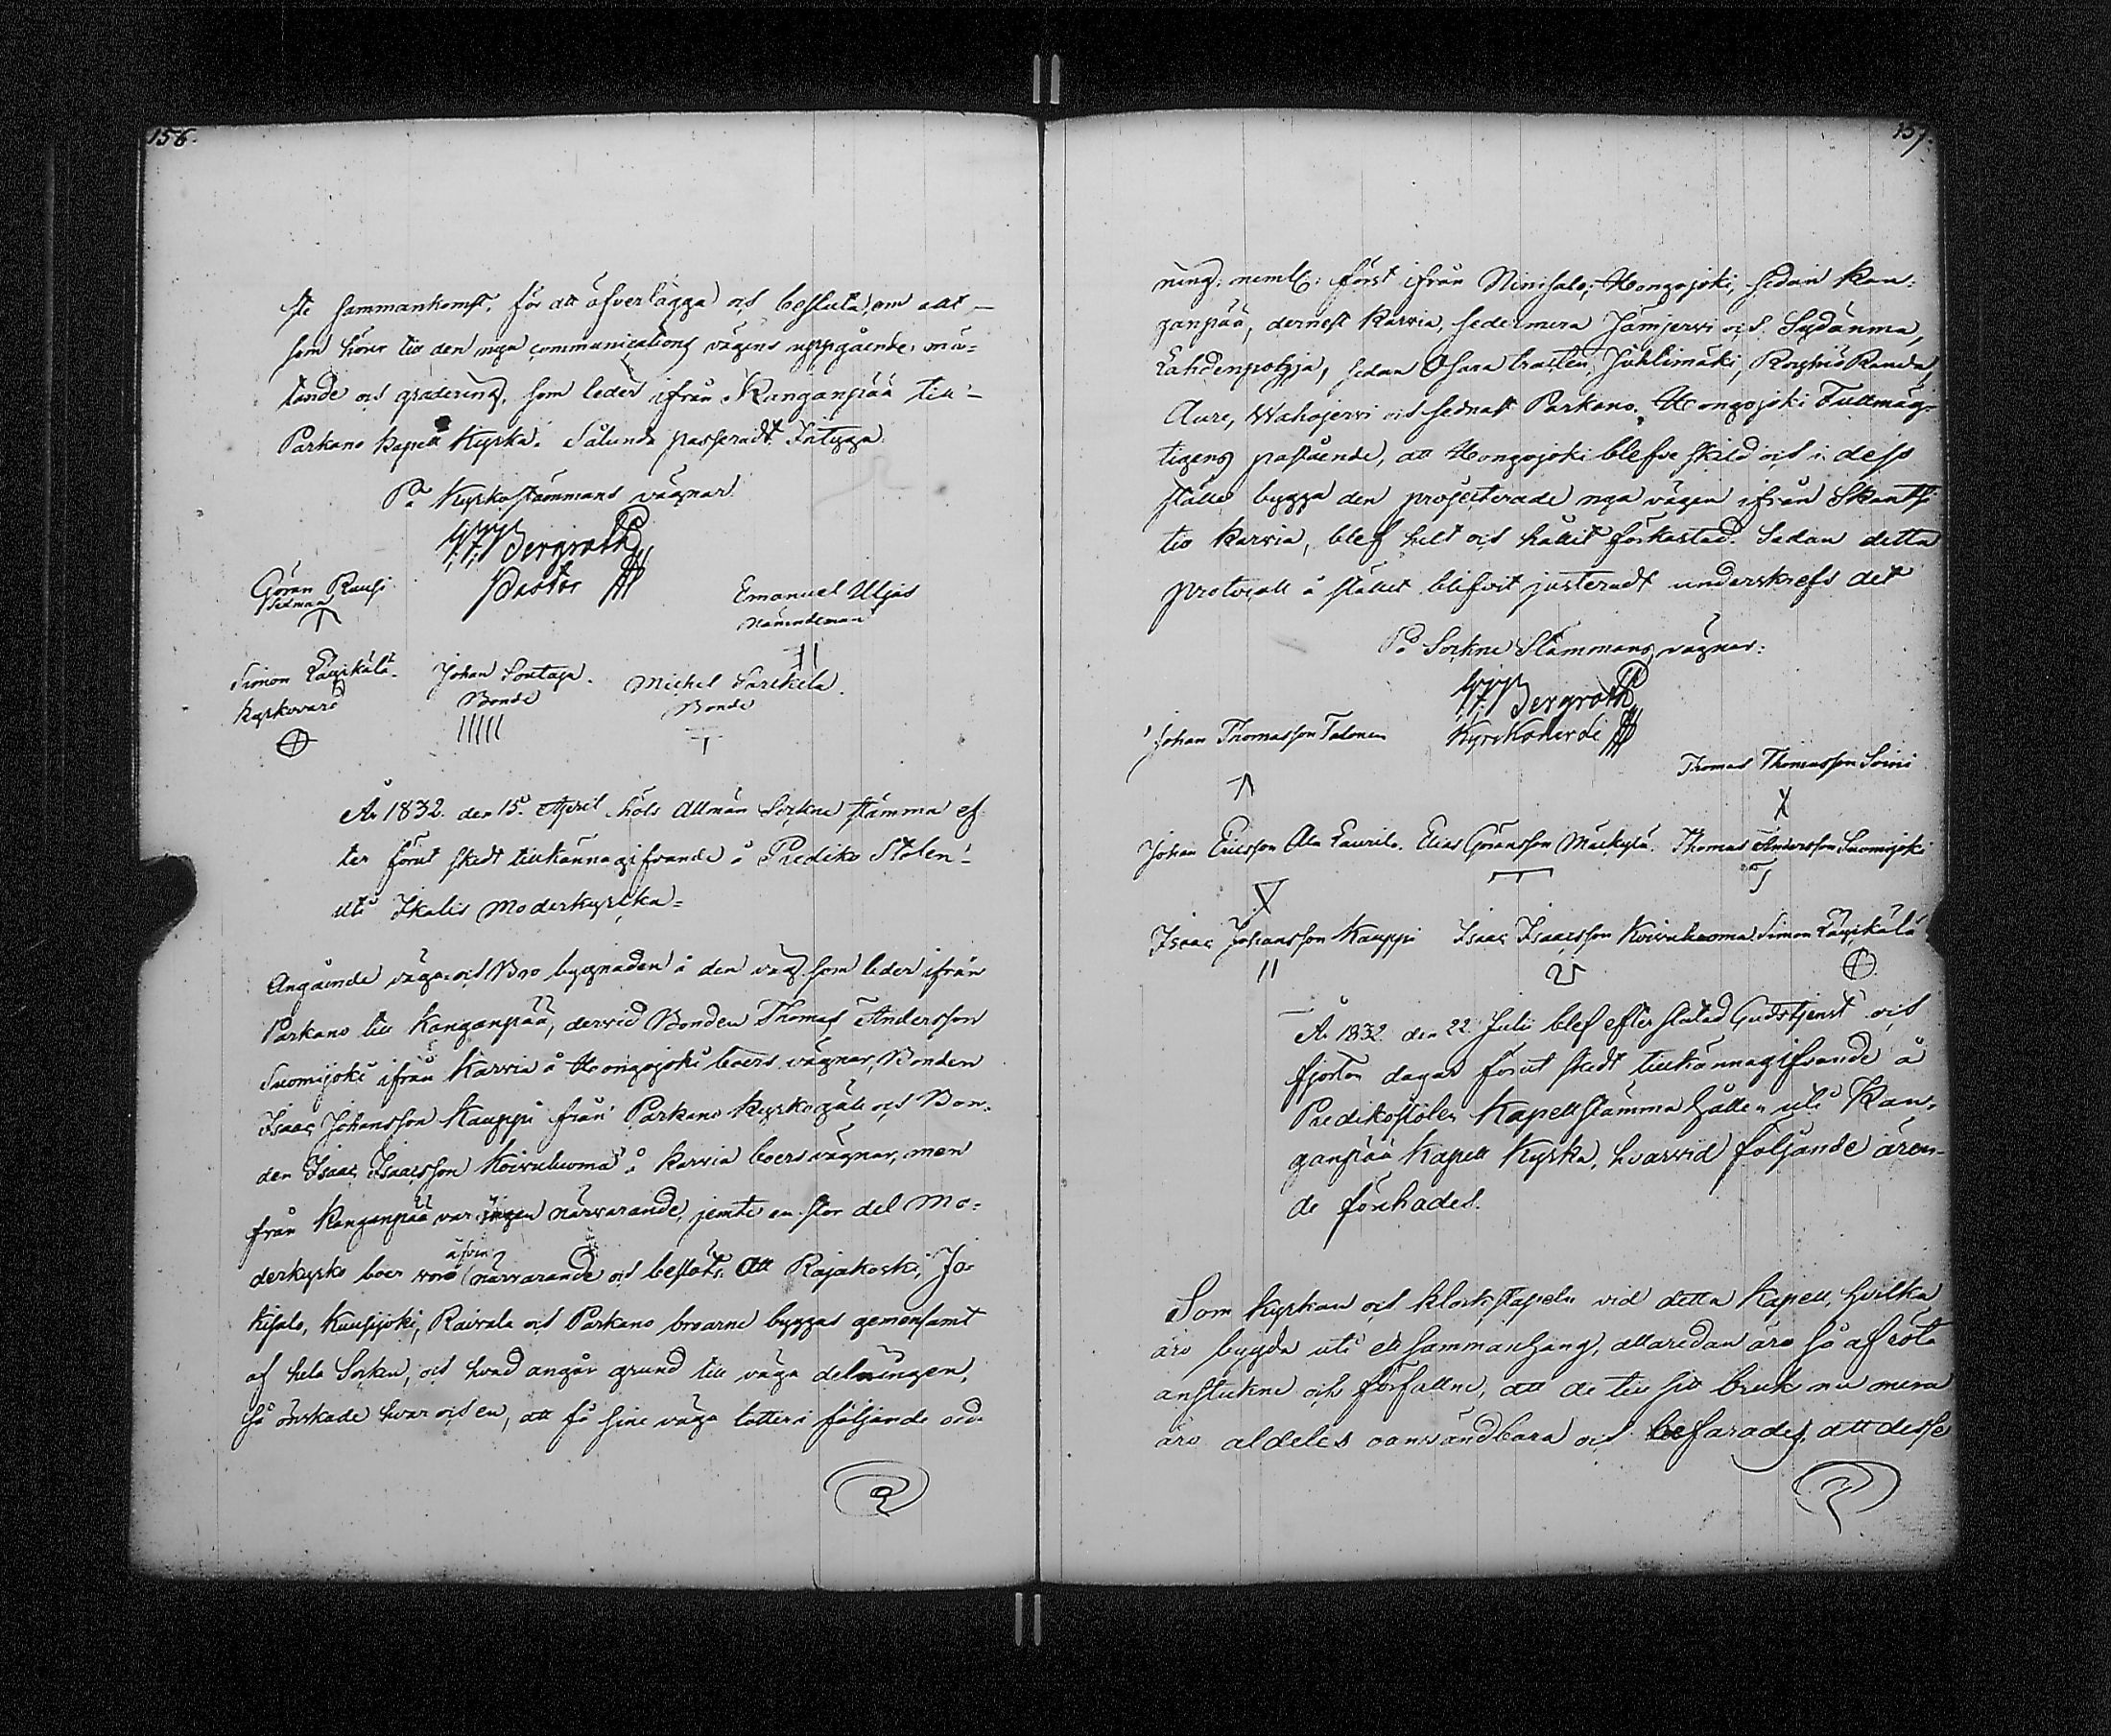 156.
ste sammankomst, för att öfverlägga och besluta, om allt
som hörer till den nya communications vägens uppgående, mä-
tande och gradering, som leder ifrån Kanganpää till
Parkano Kapell Kyrka. Sålunda passeradt Intyga.
På Kyrkostämmans vägnar.
Bergroth
Pastor
Göran Rausi
Sexman
Emanuel Uljas
Nämndeman
Simon Läykälä
Kyrkovärd
Johan Sontaga.
Bonde
Michel Särkelä.
Bonde
År 1832. den 15. April höls Allmän Sockne stämma ef-
ter förut skedt tillkännagifvande å Prediko Stolen
uti Ikalis Moderkyrka=
Angående väge och Bro byggnaden å den väg som leder ifrån
Parkano till Kanganpää, dervid Bonden Thomas Andersson
Suomijoki ifrån Karvia å Hongojoki boers vägnar, Bonden
Isaac Johansson Kauppi från Parkano Kyrkogäll och Bon-
den Isaac Isaacsson Koivuluoma å Karvia boers vägnar, men
från Kanganpää var ingen närvarande, jemte en stor del Mo-
derkyrko boer voro äfven närvarande och beslöts: Att Rajakoski, Ja-
kisalo, Kuusijoki, Raivala och Parkano broarne byggas gemensamt
af hela Socken, och hvad angår grund till väga delningen,
så önskade hvar och en, att få sine väga lotter i följande ord-
157.
ning: neml: först ifrån Ninisalo, Hongojoki, sedan Kan-
ganpää, dernest Karvia, sedermera Jämijervi och Sydänma,
Lahdenpohja, sedan Osara trakten, Juhtimäki, Röyhiö Randa,
Aure, Wahojervi och sednast Parkano. Hongojoki Fullmäg-
tigens påstående, att Hongojoki blefve skild och i dess
ställe bygga den projecterade nya vägen ifrån Skantsi
till Karvia, blef helt och hållit förkastad. Sedan detta
protocoll å stället blifvit justeradt underskrefs det
På Sockne Stämmans vägnar:
Bergroth
Kyrkoherde
Johan Thomasson Talonen
Thomas Thomasson Soini
Johan Ericsson Ala Laurila. Elias Göransson Mäckylä. Thomas Andersson Suomijoki
Isaac Johansson Kauppi Isaac Isaacsson Koivuluoma Simon Läykälä
År 1832. den 22. Julii blef efter slutad Gudstjenst och
fjorton dagar förut skedt tillkännagifvande å
Predikostolen Kapellstämma hållen uti Kan-
ganpää Kapell Kyrka, hvarvid följande ären-
de förehades.
Som kyrkan och klockstapeln vid detta Kapell, hvilka
äro bygda uti ett sammanhang, allaredan äro så af röta
anstuckne och förfallne, att de till sitt bruk nu mera
äro aldeles oanvändbara och befarades, att desse